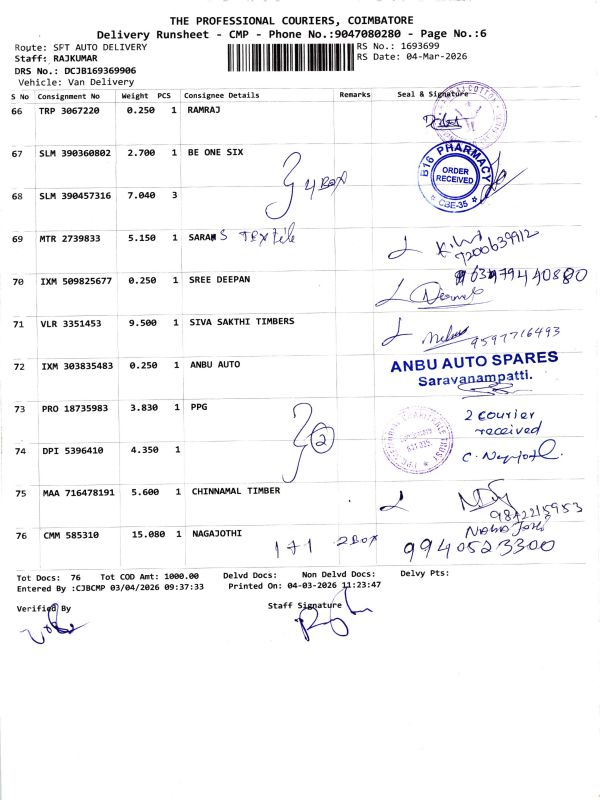 THE PROFESSIONAL COURIERS, COIMBATORE
Delivery Runsheet - CMP - Phone No.:9047080280 - Page No.:6
Route: SFT AUTO DELIVERY
RS No.: 1693699
Staff: RAJKUMAR
RS Date: 04-Mar-2026
DRS No.: DCJB169369906
Vehicle: Van Delivery
S No Consignment No Weight PCS Consignee Details Remarks Seal & Signature
66 TRP 3067220 0.250 1 RAMRAJ
67 SLM 390360802 2.700 1 BE ONE SIX
B16 PHARMACY
ORDER
RECEIVED
CBE-35
68 SLM 390457316 7.040 3
4 BOX
69 MTR 2739833 5.150 1 SARANS TEXTILE
7200639912
70 IXM 509825677 0.250 1 SREE DEEPAN
71 VLR 3351453 9.500 1 SIVA SAKTHI TIMBERS
9597716493
72 IXM 303835483 0.250 1 ANBU AUTO
ANBU AUTO SPARES
Saravanampatti.
73 PRO 18735983 3.830 1 PPG
2 courier
received
2
74 DPI 5396410 4.350 1
75 MAA 716478191 5.600 1 CHINNAMAL TIMBER
9842215953
76 CMM 585310 15.080 1 NAGAJOTHI
1+1 2BOX
9940523300
Tot Docs: 76 Tot COD Amt: 1000.00 Delvd Docs: Non Delvd Docs: Delvy Pts:
Entered By :CJBCMP 03/04/2026 09:37:33 Printed On: 04-03-2026 11:23:47
Verified By
Staff Signature